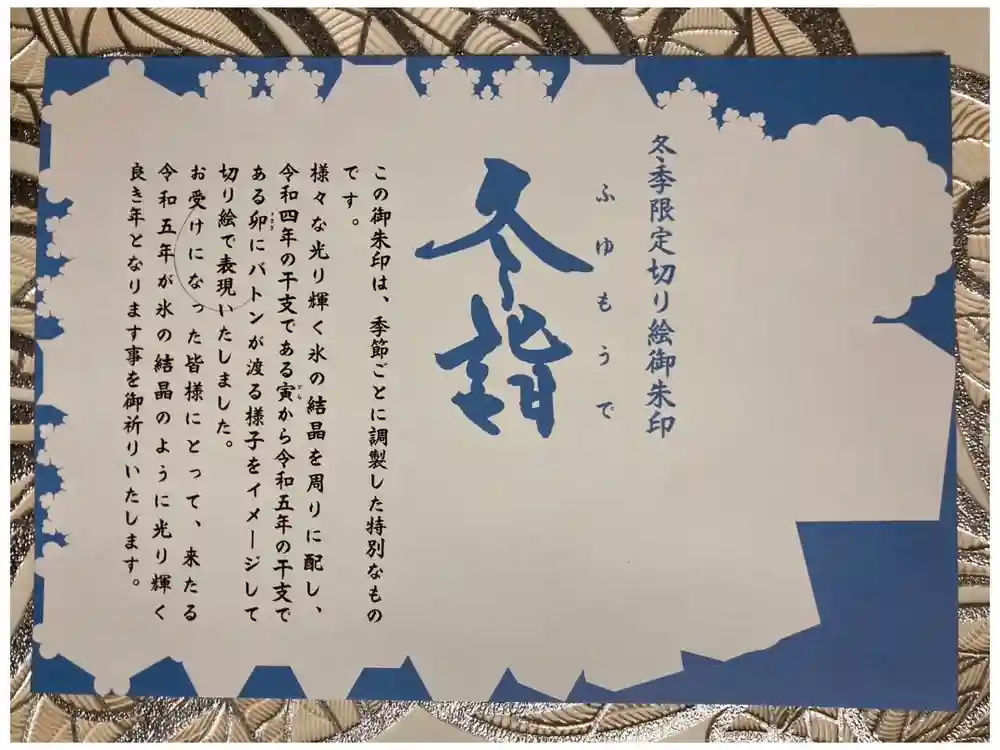 冬季限定切り絵御朱印
ふゆもうで
冬詣
この御朱印は、季節ごとに調製した特別なもの
です。
様々な光り輝く氷の結晶を周りに配し、
令和四年の干支である寅とらから令和五年の干支で
ある卯うさぎにバトンが渡る様子をイメージして
切り絵で表現いたしました。
お受けになった皆様にとって、来たる
令和五年が氷の結晶のように光り輝く
良き年となります事を御祈りいたします。